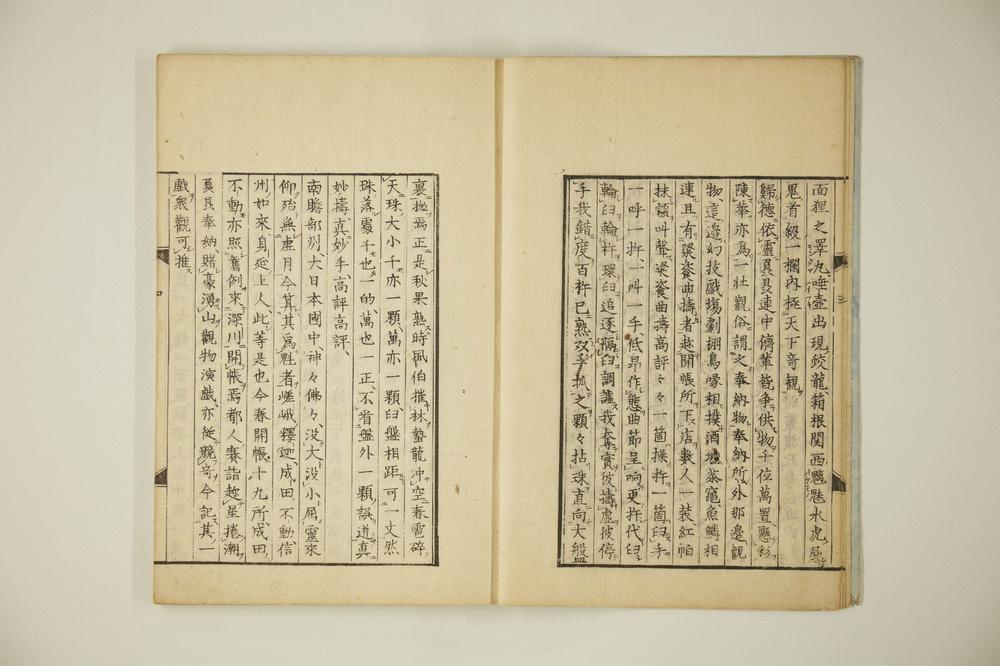 面狸之澤丸唾壺出現鮫龍箱根関西魑魅水虎
鬼首級一攔内極天下竒観
歸徳依靈員具連中儕輩皆争供物千位萬置懸
陳華亦為一壮観俗謂之奉納物奉納所外那邉観
物這邉幻技戯塲劇棚鳥喙相撲酒壚茶竈魚鱗相
連且有粱瓷曲擣者趂開帳所下店數人一装紅帕
抹額叫聲粱瓷曲擣高評々々一箇操杵一箇臼手
一呼一杵一叫一手低昂作態曲節呈响更杵代臼
輪臼輪杵環臼追逐隔臼調謔我奪實彼擣虚彼停
手我錯度百杵已熟双手抓之顆々拈珠直向大盤
裏抛焉正是秋果熟時風伯摧林蟄龍冲空春雹碎
天珠大小千亦一顆萬亦一顆臼盤相距可一丈然
珠落覆千也一的萬也一正不省盤外一顆誤逬真
妙擣真妙手高評高評
南贍部州大日本國中神々佛々没大没小屈靈來
仰殆無虚月今其為魁者嵯峨釋迦成田不動信
州如來身延上人此等是也今春開帳十九所成田
不動亦照舊例來深川開帳焉都人賽詣趂星捲潮
員具奉納賭豪湧山觀物演戯亦從競竒今記其一
戯衆觀可推
三
四